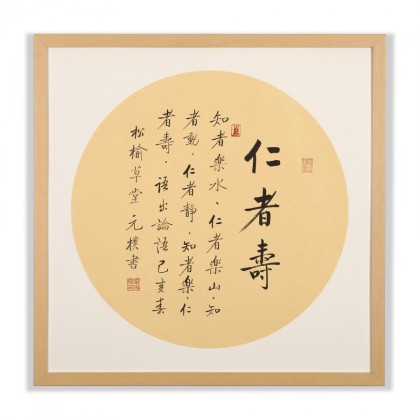 仁者壽
知者樂水·仁者樂山·知
者動·仁者靜·知者樂·仁
者壽·語出論語己亥春
松榆草堂元樸書